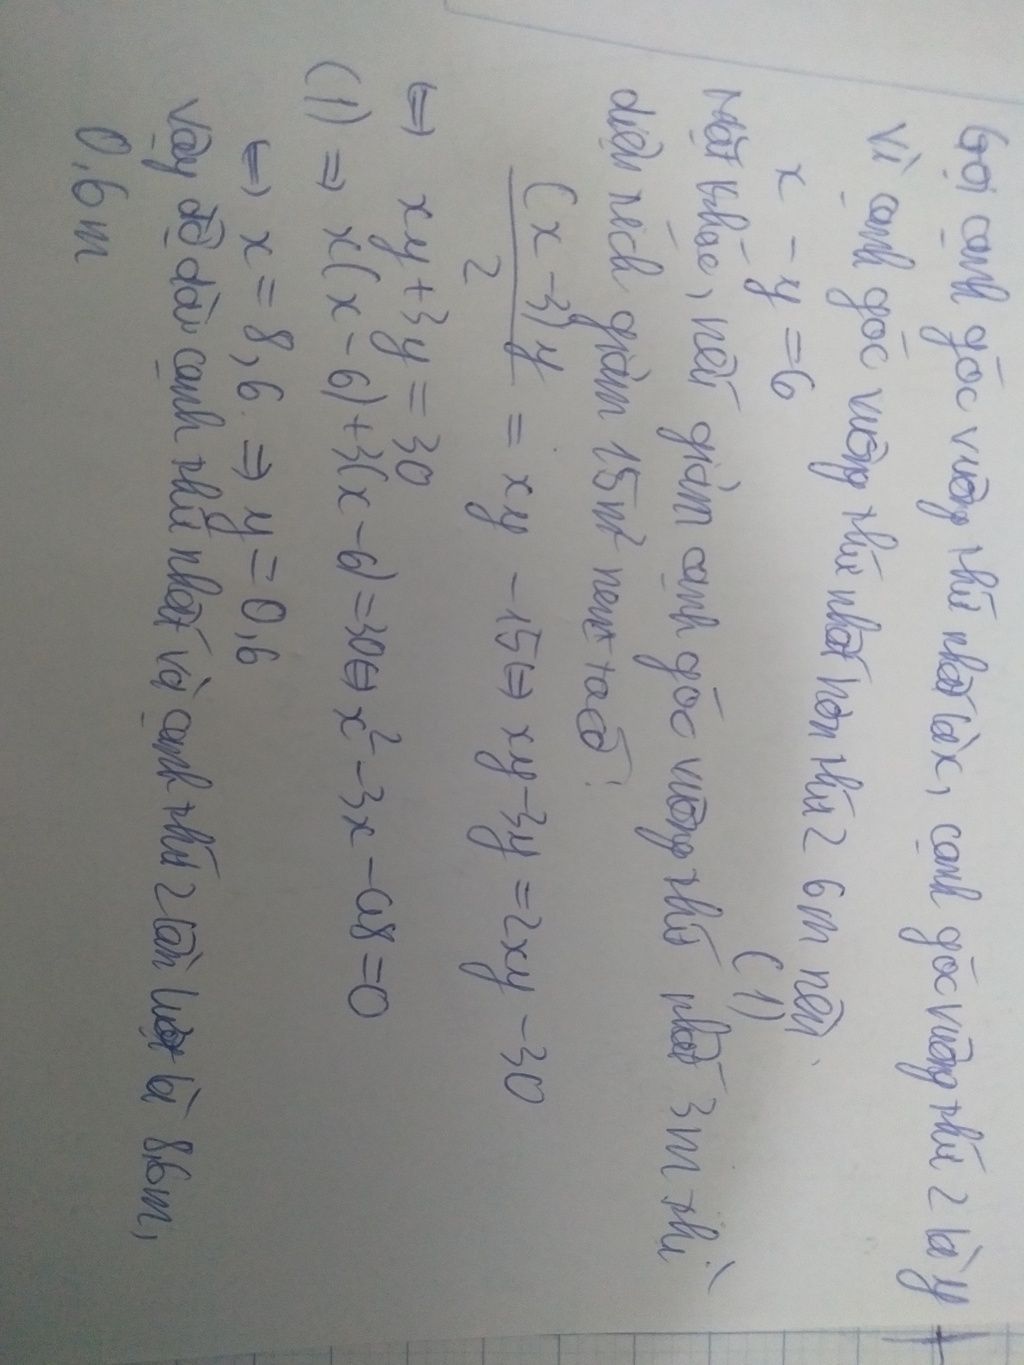 Gọi cạnh góc vuông thứ nhất là x, cạnh góc vuông thứ 2 là y
Vì cạnh góc vuông thứ nhất hơn thứ 2 6m nên
x - y = 6 (1)
Mặt khác, nếu giảm cạnh góc vuông thứ nhất 3m thì
diện tích giảm 15m² nên ta có:
(x - 3)y / 2 = xy - 15 ⇔ xy - 3y = 2xy - 30
⇔ xy + 3y = 30
(1) ⇒ x(x - 6) + 3(x - 6) = 30 ⇔ x² - 3x - 48 = 0
⇔ x = 8,6 ⇒ y = 0,6
Vậy độ dài cạnh thứ nhất và cạnh thứ 2 lần lượt là 8,6m,
0,6m